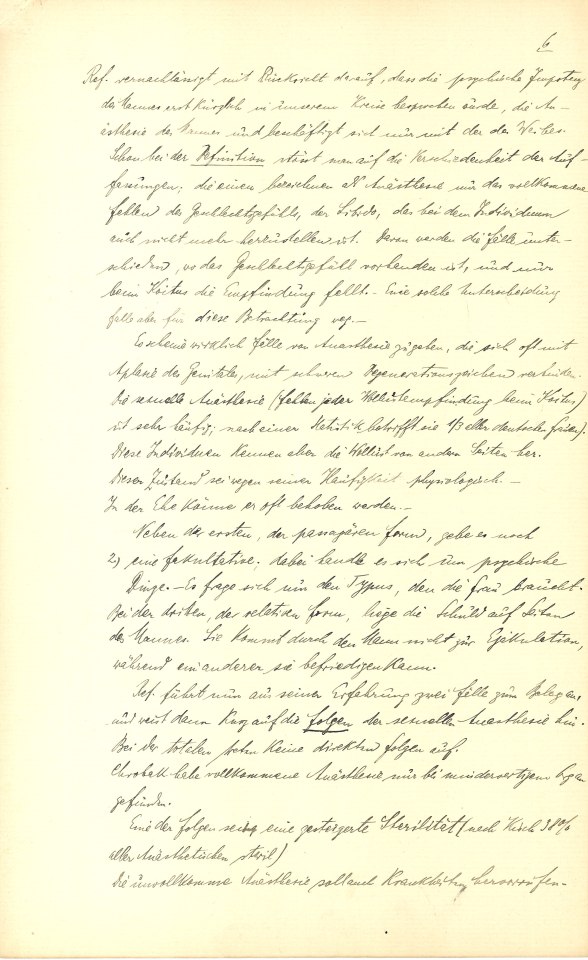 6
Ref. vernachlässigt mit Rücksicht darauf, dass die psychische Impotenz
des Mannes erst kürzlich in unserem Kreise besprochen wurde, die An-
ästhesie des Mannes und beschäftigt sich nur mit der des Weibes.
Schon bei der Definition stösst man auf die Verschiedenheit der Auf-
fassungen; die einen bezeichnen als Anästhesie nur das vollkommene
Fehlen des Geschlechtsgefühls, der Libido, das bei dem Individuum
auch nicht mehr herzustellen ist. Davon werden die Fälle unter-
schieden, wo das Geschlechtsgefühl vorhanden ist, und nur
beim Koitus die Empfindung fehlt. - Eine solche Unterscheidung
falle aber für diese Betrachtung weg. -
Es scheine wirklich Fälle von Anästhesie zu geben, die sich oft mit
Aplasie des Genitales, mit schweren Degenerationszeichen verbinden.
Die sexuelle Anästhesie (Fehlen jeder Wollustempfindung beim Koitus)
ist sehr häufig; nach einer Statistik betrifft sie 1/3 aller deutschen Frauen).
Diese Individuen kennen aber die Wollust von andern Seiten her.
Diesen Zustand sei wegen seiner Häufigkeit physiologisch. -
In der Ehe könne er oft behoben werden. -
Neben der ersten, der passagären Form, gebe es noch
2) eine fakultative; dabei handle es sich um psychische
Dinge. - Es frage sich nun den Typus, den die Frau braucht.
Bei der dritten, der relativen Form, liege die Schuld auf Seiten
des Mannes. Sie kommt durch den Mann nicht zur Ejakulation,
während ein anderer sie befriedigen kann.
Ref. führt nun aus seiner Erfahrung zwei Fälle zum Belege an,
und weist dann kurz auf die Folgen der sexuellen Anästhesie hin.
Bei der totalen treten keine direkten Folgen auf.
Chrobak habe vollkommene Anästhesie nur bei minderwertigem Organ
gefunden.
Eine der Folgen sei eine gesteigerte Sterilität (nach Kisch 38%
aller Anästhetischen steril)
Die unvollkomme Anästhesie soll auch Krankheiten hervorrufen. -